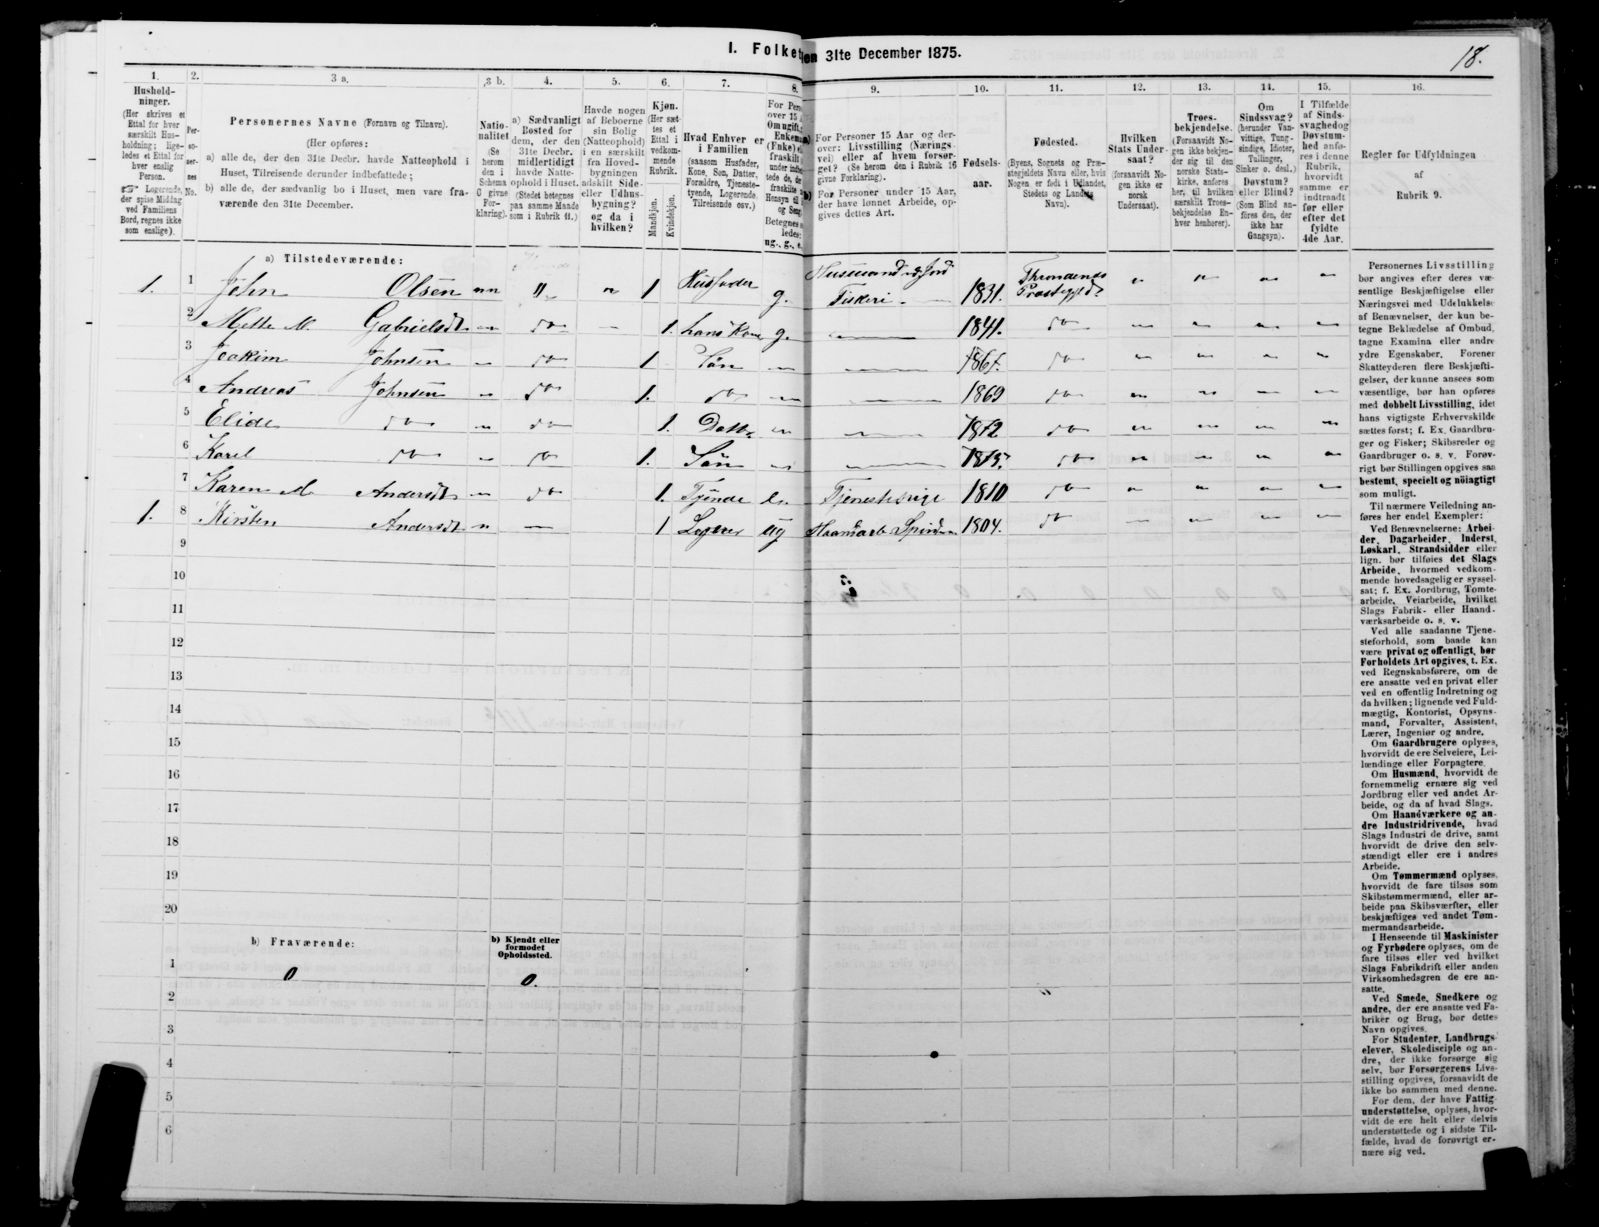 I. Folket
en 31te December 1875.
18.
1.
2.
3 a.
3 b.
4.
5.
6.
7.
8.
9.
10.
11.
12.
13.
14.
15.
16.
Hushold-
ninger.
(Her skrives et
Ettal for hver
særskilt Hus-
holdning; lige-
ledes et Ettal for
hver enslig
Person.
Logerende,
der spise Middag
ved Familiens
Bord, regnes ikke
som enslige).
Per-
so-
ner-
nes
No.
Personernes Navne (Fornavn og Tilnavn).
(Her opføres:
a) alle de, der den 31te Decbr. havde Natteophold i
Huset, Tilreisende derunder indbefattede;
b) alle de, der sædvanlig bo i Huset, men vare fra-
værende den 31te December.
Natio-
nalitet
(Se
herom
den i
Schema
O givne
For-
klaring).
a) Sædvanligt
Bosted for
dem, der den
31te Decbr.
midlertidigt
havde Natte-
ophold i Huset.
(Stedet betegnes
paa samme Maade
som i Rubrik 11.)
Havde nogen
af Beboerne
sin Bolig
(Natteophold)
i en særskilt
fra Hoved-
bygningen
adskilt Side-
eller Udhus-
bygning?
og da i
hvilken?
Kjøn.
(Her sæt-
tes et
Ettal i
vedkom-
mende
Rubrik.
Mandkjøn.
Kvindekjøn.
Hvad Enhver er
i Familien
(saasom Husfader,
Kone, Søn, Datter,
Forældre, Tjeneste-
tyende, Logerende,
Tilreisende osv.)
For Pers
over 15 A
Om ugift,
Enkem
(Enke) e
fraskilt
under indbe
tede de, de
fraskilte
Hensyn til
og Seng
Betegnes s
ledes:
ug., g., e.
For Personer 15 Aar og der-
over: Livsstilling (Nærings-
vei) eller af hvem forsør-
get? (Se herom den i Rubrik 16
givne Forklaring).
For Personer under 15 Aar,
der have lønnet Arbeide, op-
gives dettes Art.
Fødsels-
aar.
Fødested.
(Byens, Sognets og Præ-
stegjeldets Navn eller, hvis
Nogen er født i Udlandet,
Stedets og Landets
Navn).
Hvilken
Stats Under-
saat?
(forsaavidt No-
gen ikke er
norsk
Undersaat).
Troes-
bekjendelse.
(Forsaavidt No-
gen ikke bekjen-
der sig til den
norske Stats-
kirke, anføres
her, til hvilken
særskilt Troes-
bekjendelse En-
hver henhører).
Om
Sindssvag?
(herunder Van-
vittige, Tung-
sindige, Idioter,
Tullinger,
Sinker o. desl.)
Døvstum?
eller Blind?
(Som Blind an-
føres den, der
ikke har
Gangsyn).
I Tilfælde
af Sinds-
svaghed og
Døvstum-
hed anfø-
res i denne
Rubrik,
hvorvidt
samme er
indtraadt
før eller
efter det
fyldte
4de Aar.
Regler for Udfyldningen
af
Rubrik 9.
a) Tilstedeværende:
1. 1 John Olsen nn " n 1 Husfader g. Husmand m Jord Fiskeri 1831. Throndenes Præstegjeld
2 Mette M. Gabrielsdt do 1. hans Kone g. 1841. do
3 Joakim Johnsen do 1 Søn do
4 Andreas Johnsen do 1. do 1869 do
5 Elide do do 1. Datter 1872 do
6 Karel do do 1. Søn 1875. do
7 Karen M Andersdt do 1. Tjende Tjenestepige 1810 do
1. 8 Kirsten Andersdt 1 ug Spinden 1804. do
9
10
11
12
13
14
15
16
17
18
19
20
b) Fraværende:
b) Kjendt eller
formodet
Opholdssted.
1
0 0.
2
3
4
5
6
Personernes Livsstilling
bør angives efter deres væ-
sentlige Beskjæftigelse eller
Næringsvei med Udelukkelse
af Benævnelser, der kun be-
tegne Beklædelse af Ombud,
tagne Examina eller andre
ydre Egenskaber. Forener
Skatteyderen flere Beskjæfti-
gelser, der kunne ansees som
væsentlige, bør han opføres
med dobbelt Livsstilling, idet
hans vigtigste Erhvervskilde
sættes først; f. Ex. Gaardbru-
ger og Fisker; Skibsreder og
Gaardbruger o. s. v. Forøv-
rigt bør Stillingen opgives saa
bestemt, specielt og nøiagtigt
som muligt.
Til nærmere Veiledning an-
føres her endel Exempler:
Ved Benævnelserne: Arbei-
der, Dagarbeider, Inderst,
Løskarl, Strandsidder eller
lign. bør tilføies det Slags
Arbeide, hvormed vedkom-
mende hovedsagelig er syssel-
sat; f. Ex. Jordbrug, Tomte-
arbeide, Veiarbeide, hvilket
Slags Fabrik- eller Haand-
værksarbeide o. s. v.
Ved alle saadanne Tjene-
steforhold, som baade kan
være privat og offentligt, bør
Forholdets Art opgives, t. Ex.
ved Regnskabsførere, om de
ere ansatte ved en privat eller
ved en offentlig Indretning og
da hvilken; lignende ved Fuld-
mægtig, Kontorist, Opsyns-
mand, Forvalter, Assistent,
Lærer, Ingeniør og andre.
Om Gaardbrugere oplyses,
hvorvidt de ere Selveiere, Lei-
lændinge eller Forpagtere.
Om Husmænd, hvorvidt de
fornemmelig ernære sig ved
Jordbrug eller ved andet Ar-
beide, og da af hvad Slags.
Om Haandværkere og an-
dre Industridrivende, hvad
Slags Industri de drive, samt
hvorvidt de drive den selv-
stændigt eller ere i andres
Arbeide.
Om Tømmermænd oplyses,
hvorvidt de fare tilsøs som
Skibstømmermænd, eller ar-
beide paa Skibsværfter, eller
beskjæftiges ved andet Tøm-
mermandsarbeide.
I Henseende til Maskinister
og Fyrbødere oplyses, om de
fare tilsøs eller ved hvilket
Slags Fabrikdrift eller anden
Virksomhedsgren de ere an-
satte.
Ved Smede, Snedkere og
andre, der ere ansatte ved Fa-
briker og Brug, bør dettes
Navn opgives.
For Studenter, Landbrugs-
elever, Skoledisciple og an-
dre, der ikke forsørge sig
selv, bør Forsørgerens Livs-
stilling opgives, forsaavidt de
ikke bo sammen med denne.
For dem, der have Fattig-
understøttelse, oplyses, hvor-
vidt de ere helt eller delvis
understøttede og i sidste Til-
fælde, hvad de forøvrigt er-
nære sig ved.